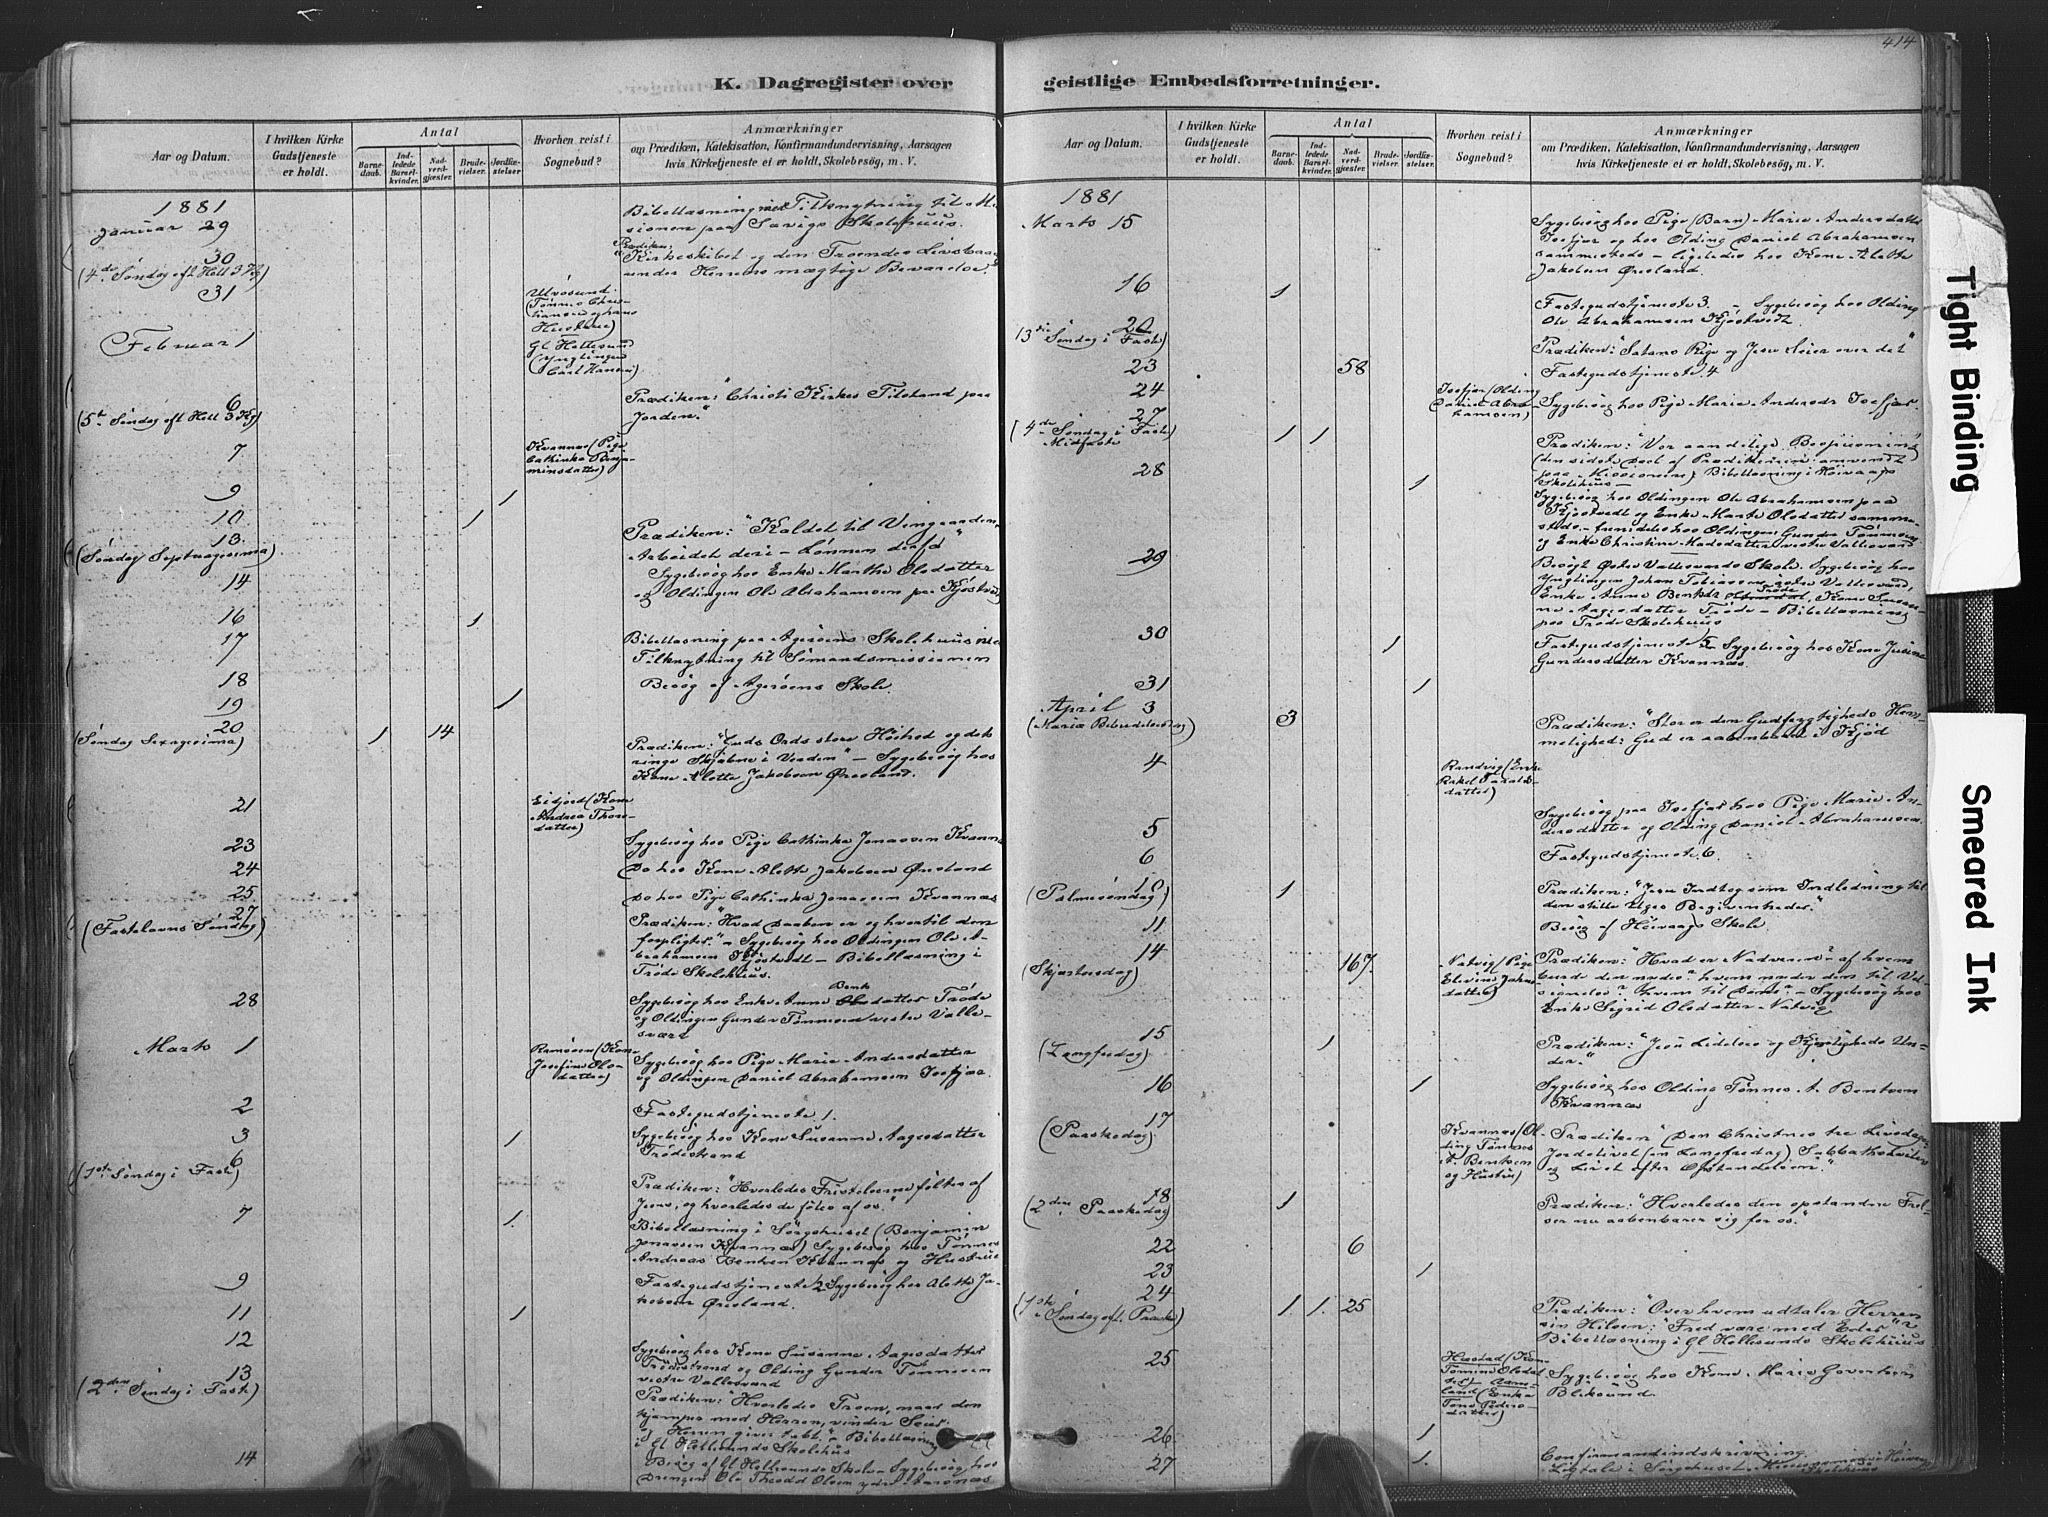 414
K. Dagregister over geistlige Embedsforretninger.
Aar og Datum.
I hvilken Kirke Gudstjeneste er holdt.
Antal
Barnedaab.
Indledede Barselkvinder.
Nadverdgjæster.
Brudevielser.
Jordfæstelser
Hvorhen reist i Sognebud?
Anmærkninger
om Prædiken, Katekisation, Konfirmandundervisning, Aarsagen
hvis Kirketjeneste et er holdt, Skolebesög, m. V.
1881
Januar 29
Bibellæsning med Tilknytning til Mi-
sionen paa Skolehuus.
30
(4de Søndag eft Hell 3 Kg)
Prædiken:
Kirkeskibet og den Troendes Livsbaad
under Herrens mægtige Bevarelse.
31
Ulvøsund
(Tønnes Chris-
tiansen og hans
Hustrue)
Februar 1
Gl Hellesund
(Ynglingen
Carl Hansen)
6
(5te Søndag eft Hell 3 Kg)
Prædiken: "Christi Kirkes Tilstand paa
Jorden."
7
Kvannæs (Pige
Cathinka Benja-
minsdatter)
9
1
10
1
13
(Søndag Septuagesima)
Prædiken: "Kaldet til Vingaarden
Arbeidet deri – Lønnen derfo"
14
Sygebesög hos Enke Marthe Olsdatter
og Oldingen Ole Abrahamsen paa Kjøstvedt
16
1
17
Bibellæsning paa Agerøens Skolehuus med
Tilknytning til Sømandsmissionen
18
Besög af Agerøens Skole.
19
1
20
(Søndag Sexagesima)
1
14
Prædiken: "Guds Ords store Höihed og dets
ringe Skjæbne i Verden" – Sygebesög hos
Kone Alette Jakobsen Øresland.
21
Eidjord (Kone
Andrea Thors-
datter)
23
Sygebesög hos Pige Cathinka Jonassen Kvannæs
24
Do hos Kone Alette Jakobsen Øresland
25
Do hos Pige Cathinka Jonassen Kvannæs
27
(Fastelavns Søndag)
Prædiken: "Hvad Daaben er og hvortil den
forpligter." – Sygebesög hos Oldingen Ole A-
brahamsen Kjøstvedt – Bibellæsning i
Trøde Skolehuus.
28
Sygebesög hos Enke Anne Bents datter Trøde
og Oldingen Gunder Tønnesen vestre Valle-
sværd
Marts 1
Ramsøen (Kone
Josefine Ols-
datter)
Sygebesög hos Pige Marie Andersdatter
og Oldingen Daniel Abrahamsen Isefjær.
2
Fastegudstjeneste 1.
3
1
Sygebesög hos Kone Susanne Aagesdatter
Trødestrand
6
(1ste Søndag i Faste)
Prædiken: "Hvorledes Fristelserne følter af
Jesus, og hvorledes de føles af os."
7
1.
Bibellæsning i Sørgehuset (Benjamin
Jonassen Kvannæs) Sygebesög hos Tønnes
Andreas Bentsen Kvannæs og Hustrue
9
Fastegudstjeneste 2 Sygebesög hos Alette Ja-
kobsen Øresland.
11
1
12
Sygebesög hos Kone Susanne Aagesdatter
Trødestrand og Olding Gunder Tønnesen
vestre Vallesværd
13
(2den Søndag i Faste)
Prædiken: "Hvorledes Troen, naar den
kjæmper med Herren, vinder Seier,
i Herren giver tabt." – Bibellæsning
i Gl Hellesunds Skolehus
14
Besög af Gl Hellesunds Skole – Sygebesög hos
Drengen Ole Theodd Olsen ydre Aarsnæs
Aar og Datum.
I hvilken Kirke Gudstjeneste er holdt.
Antal
Barnedaab.
Indledede Barselkvinder.
Nadverdgjæster.
Brudevielser.
Jordfæstelser.
Hvorhen reist i Sognebud?
Anmærkninger
om Prædiken, Katekisation, Konfirmandundervisning, Aarsagen
hvis Kirketjeneste et er holdt, Skolebesög, m. V.
1881
Marts 15
Sygebesög hos Pige (Barn) Marie Andersdatter
Isefjær og hos Olding Daniel Abrahamsen
sammesteds – ligeledes hos Kone Alette
Jakobsen Øresland.
16
1
Fastegudstjeneste 3. – Sygebesög hos Olding
Ole Abrahamsen Kjøstvedt.
20
(3die Søndag i Faste)
Prædiken: "Satans Rige og Jesu Seier over det"
23
58
Fastegudstjeneste 4
24
Isefjær (Olding
Daniel Abra-
hamsen)
Sygebesög hos Pige Marie Andersdr Isefjær.
27
(4de Søndag i Faste
Midfaste
1
1
Prædiken: "Vor aandelige Bespisning
(den sidste Deel af Prædikenen anvendt
paa Missionen) Bibellæsning i Höivaags
Skolehuus –
28
1
Sygebesög hos Oldingen Ole Abrahamsen paa
Kjøstvedt og Enke Marte Olsdatter samme-
steds – fremdeles hos Oldingen Gunder Tønnesen
og Enke Christine Madsdatter vestre Vallesværd
29
Besögt Østre Vallesværds Skole. Sygebesög hos
Ynglingen Johan Tobiassen østre Vallesværd,
Enke Anne Bentsdr Trøde, Kone Susan-
ne Aagesdatter Trøde – Bibellæsning
paa Trøde Skolehuus
30
1
Fastegudstjeneste 5 Sygebesög hos Kone Jusine
Gundersdatter Kvannæs.
31
1
April 3
(Mariæ Bebudelsesdag)
3
Prædiken: "Stor er den Gudfrygtigheds Hem-
melighed: Gud er aabenbaret i Kjød
4
Randvig (Enke
Rakel Taralds-
datter)
5
Sygebesög paa Isefjær hos Pige Marie An-
dersdatter og Olding Daniel Abrahamsen.
6
Fastegudstjeneste 6.
10
(Palmesøndag)
1
Prædiken: "Jesu Indtog som Indledning til
den stille Uges Begivenheder."
11
Besög af Höivaags Skole.
14
(Skjærtorsdag)
167
Natvig (Pige
Elevine Jahns-
datter)
Prædiken: "Hvad er Nadveren? – af hvem
bude den nydes? hvem nyder den til Vel-
signelse? hvem til Döms? – Sygebesög hos
Enke Sigrid Olsdatter Natvig
15
(Langfredag)
1
Prædiken: "Jesu Lidelses og Kjærligheds Un-
der."
16
1
Sygebesög hos Olding Tønnes A. Bentsen
Kvannæs
17
(Paaskedag)
Kvannæs (Ol-
ding Tønnes
A. Bentsen
og Hustru)
Prædiken "Den Christnes tre Livsdage:
Jordelivet (en Langfredag) Sabbathshvilen
og Livet efter Opstandelsen."
18
(2den Paaskedag
1
Prædiken: "Hvorledes den opstandne Frel-
ser nu aabenbarer sig for os."
22
6
23
1
24
(1ste Søndag eft. Paaske)
1.
1.
25
Prædiken: "Over hvem udtaler Herren
sin Hilsen: "Fred være med Eder"?
Bibellæsning i Gl. Hellesunds Skolehuus
25
Hæstad (Kone
Tomine Olsdat-
ter)
land (Enke
Tone Peders-
datter)
Sygebesög hos Kone Marie Govertsen
Bliksund.
26
1
27
1.
Confirmandindskrivning
Ligtale i Sørgehuset
Skolehuus
Tight Binding
Smeared Ink